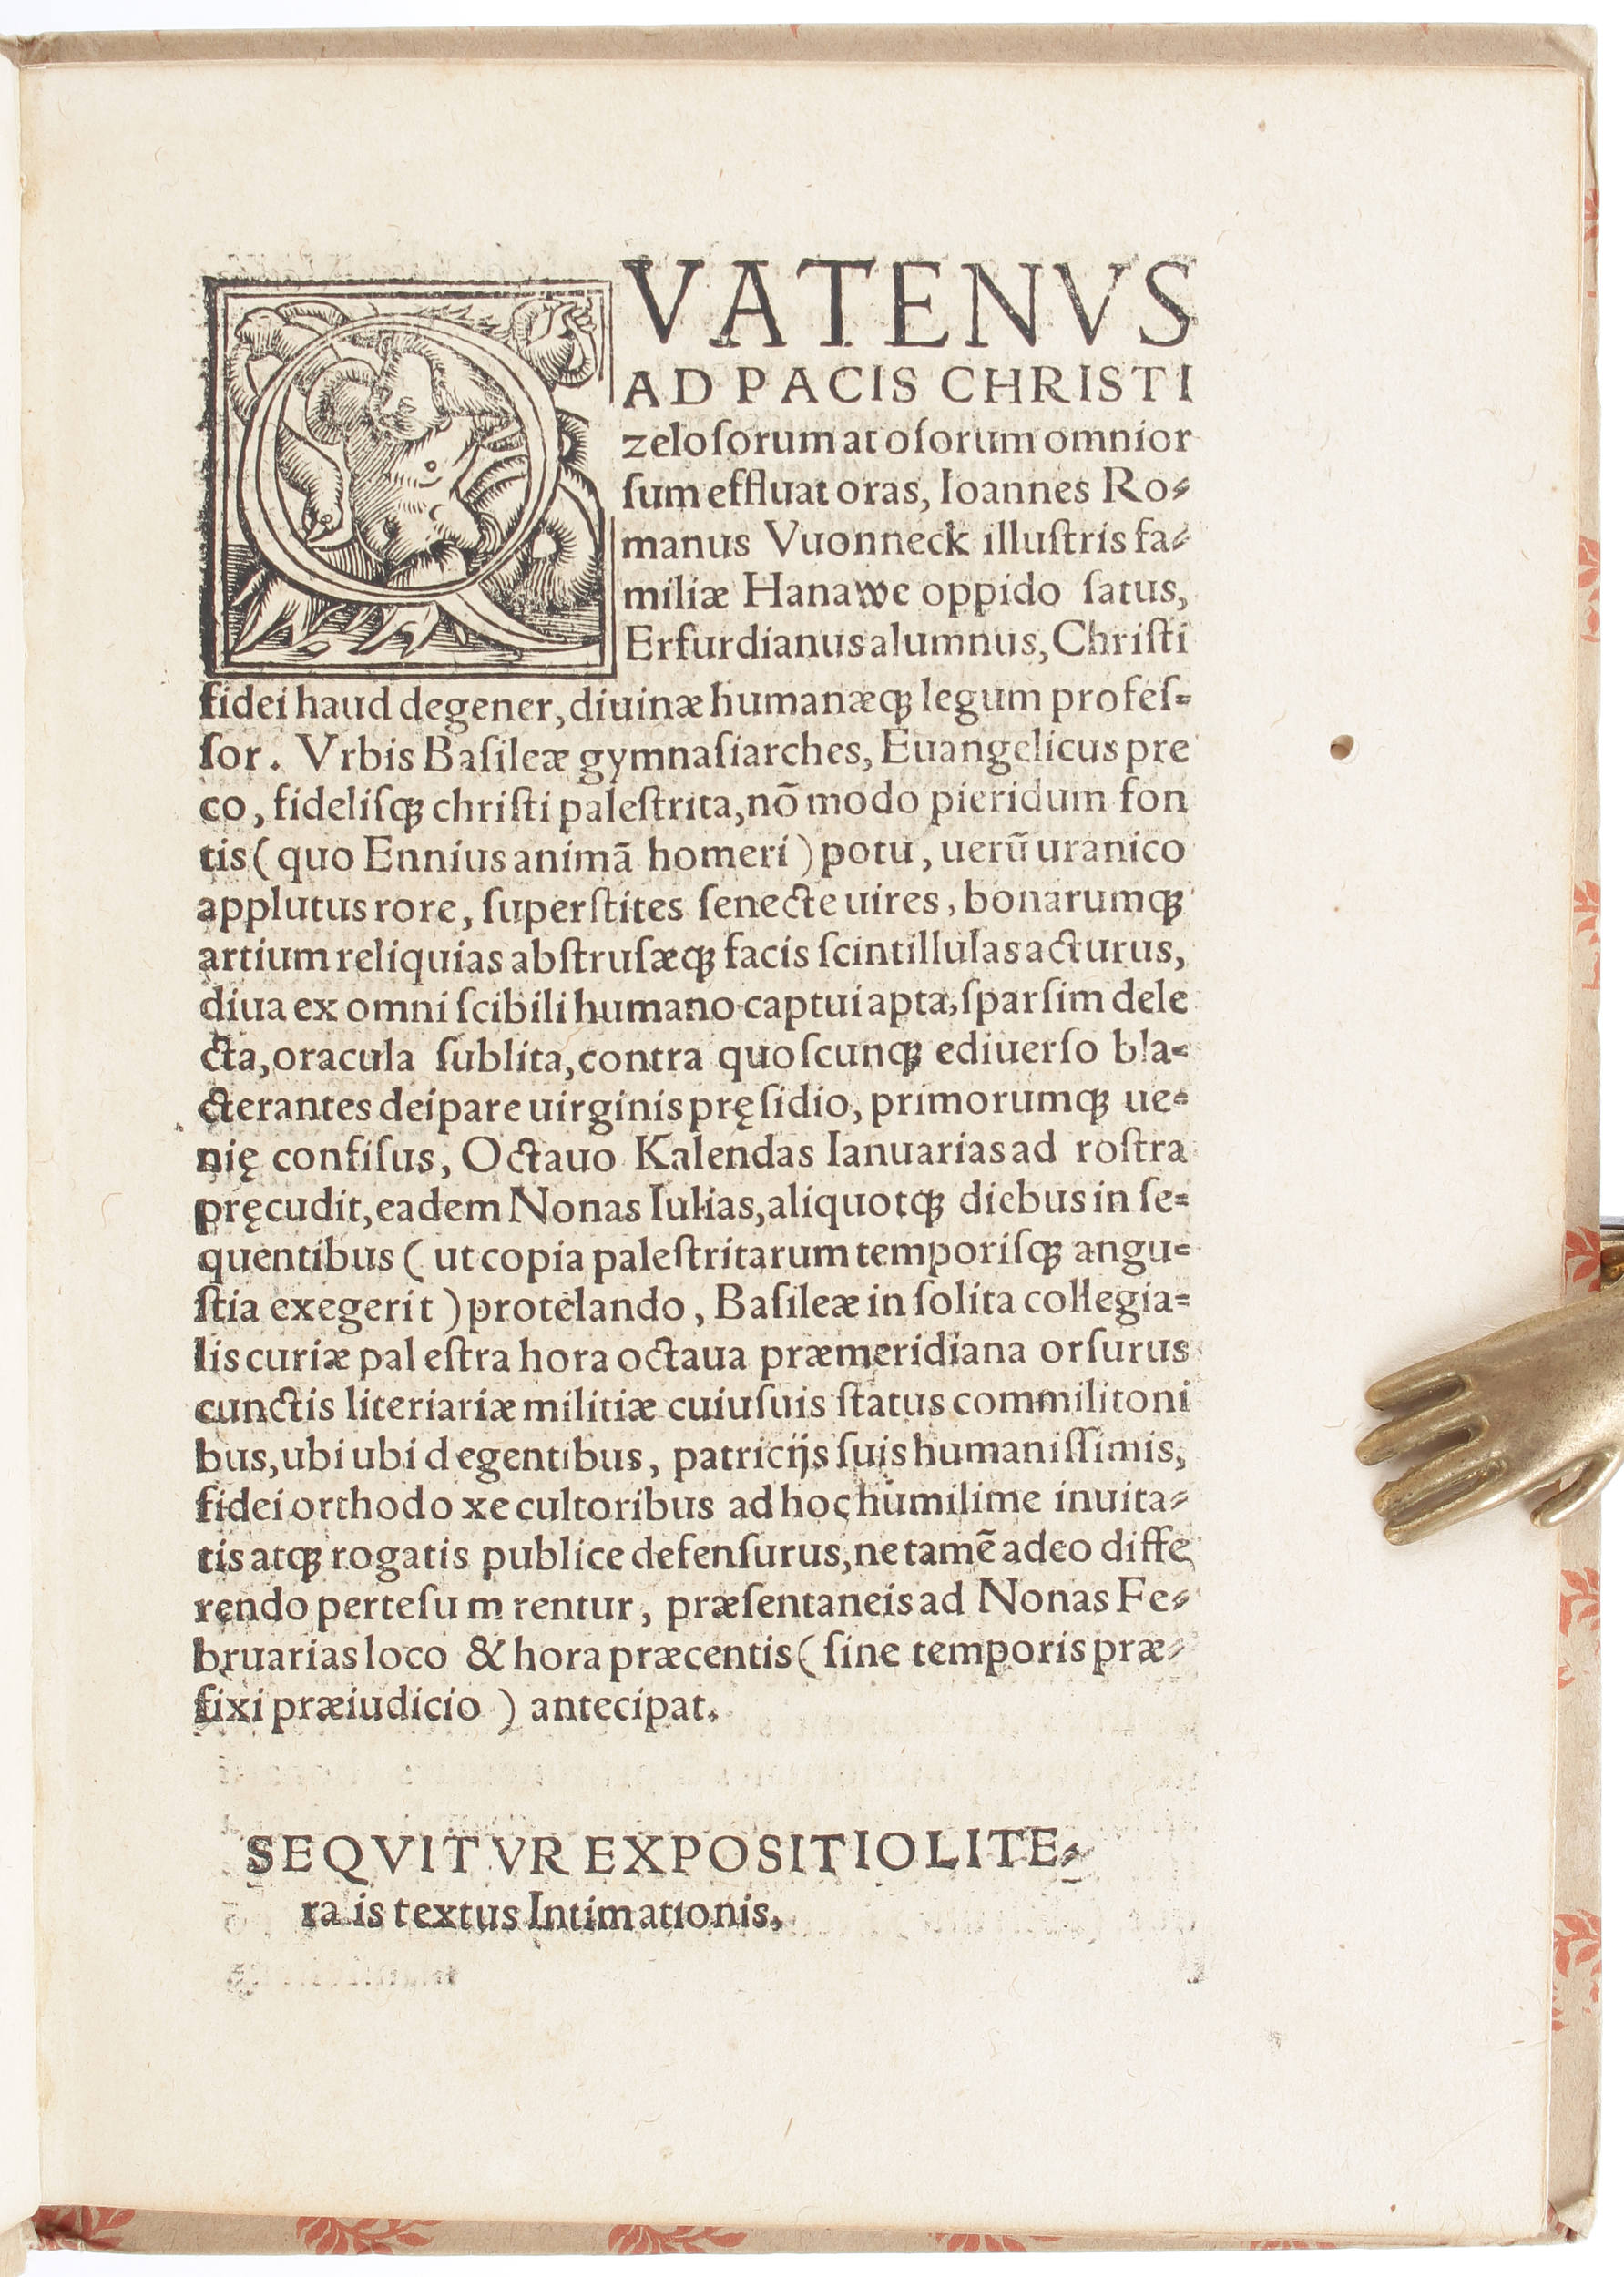 QVATENVS
AD PACIS CHRISTI
zeloſorum at oſorum omnior
ſum effluat oras, Ioannes Ro⸗
manus Vuonneck illuſtris fa⸗
miliæ Hanawe oppido ſatus,
Erfurdianus alumnus, Chriſti
fidei haud degener, diuinæ humanæqꝫ legum profeſ⸗
ſor. Vrbis Baſileæ gymnaſiarches, Euangelicus pre
co, fideliſqꝫ chriſti paleſtrita, nō modo pieridum fon
tis ( quo Ennius animā homeri ) potu, uerū uranico
applutus rore, ſuperſtites ſenecte uires, bonarumqꝫ
artium reliquias abſtruſæqꝫ facis ſcintillulas acturus,
diua ex omni ſcibili humano captui apta, ſparſim dele
cta, oracula ſublita, contra quoſcunqꝫ ediuerſo bla⸗
cterantes deipare uirginis pręſidio, primorumqꝫ ue⸗
nię confiſus, Octauo Kalendas Ianuarias ad roſtra
pręcudit, eadem Nonas Iulias, aliquotqꝫ diebus in ſe⸗
quentibus ( ut copia paleſtritarum temporiſqꝫ angu⸗
ſtia exegerit ) protelando, Baſileæ in ſolita collegia⸗
lis curiæ pal eſtra hora octaua præmeridiana orſurus
cunctis literiariæ militiæ cuiuſuis ſtatus commilitoni
bus, ubi ubi degentibus, patricijs ſuis humaniſſimis,
fidei orthodoxe cultoribus ad hoc humilime inuita⸗
tis atqꝫ rogatis publice defenſurus, ne tamē adeo diffe
rendo perteſu m rentur, præſentaneis ad Nonas Fe⸗
bruarias loco & hora præcentis ( ſine temporis præ⸗
fixi præiudicio ) antecipat.
SEQVITVR EXPOSITIO LITE⸗
ra is textus Intimationis,